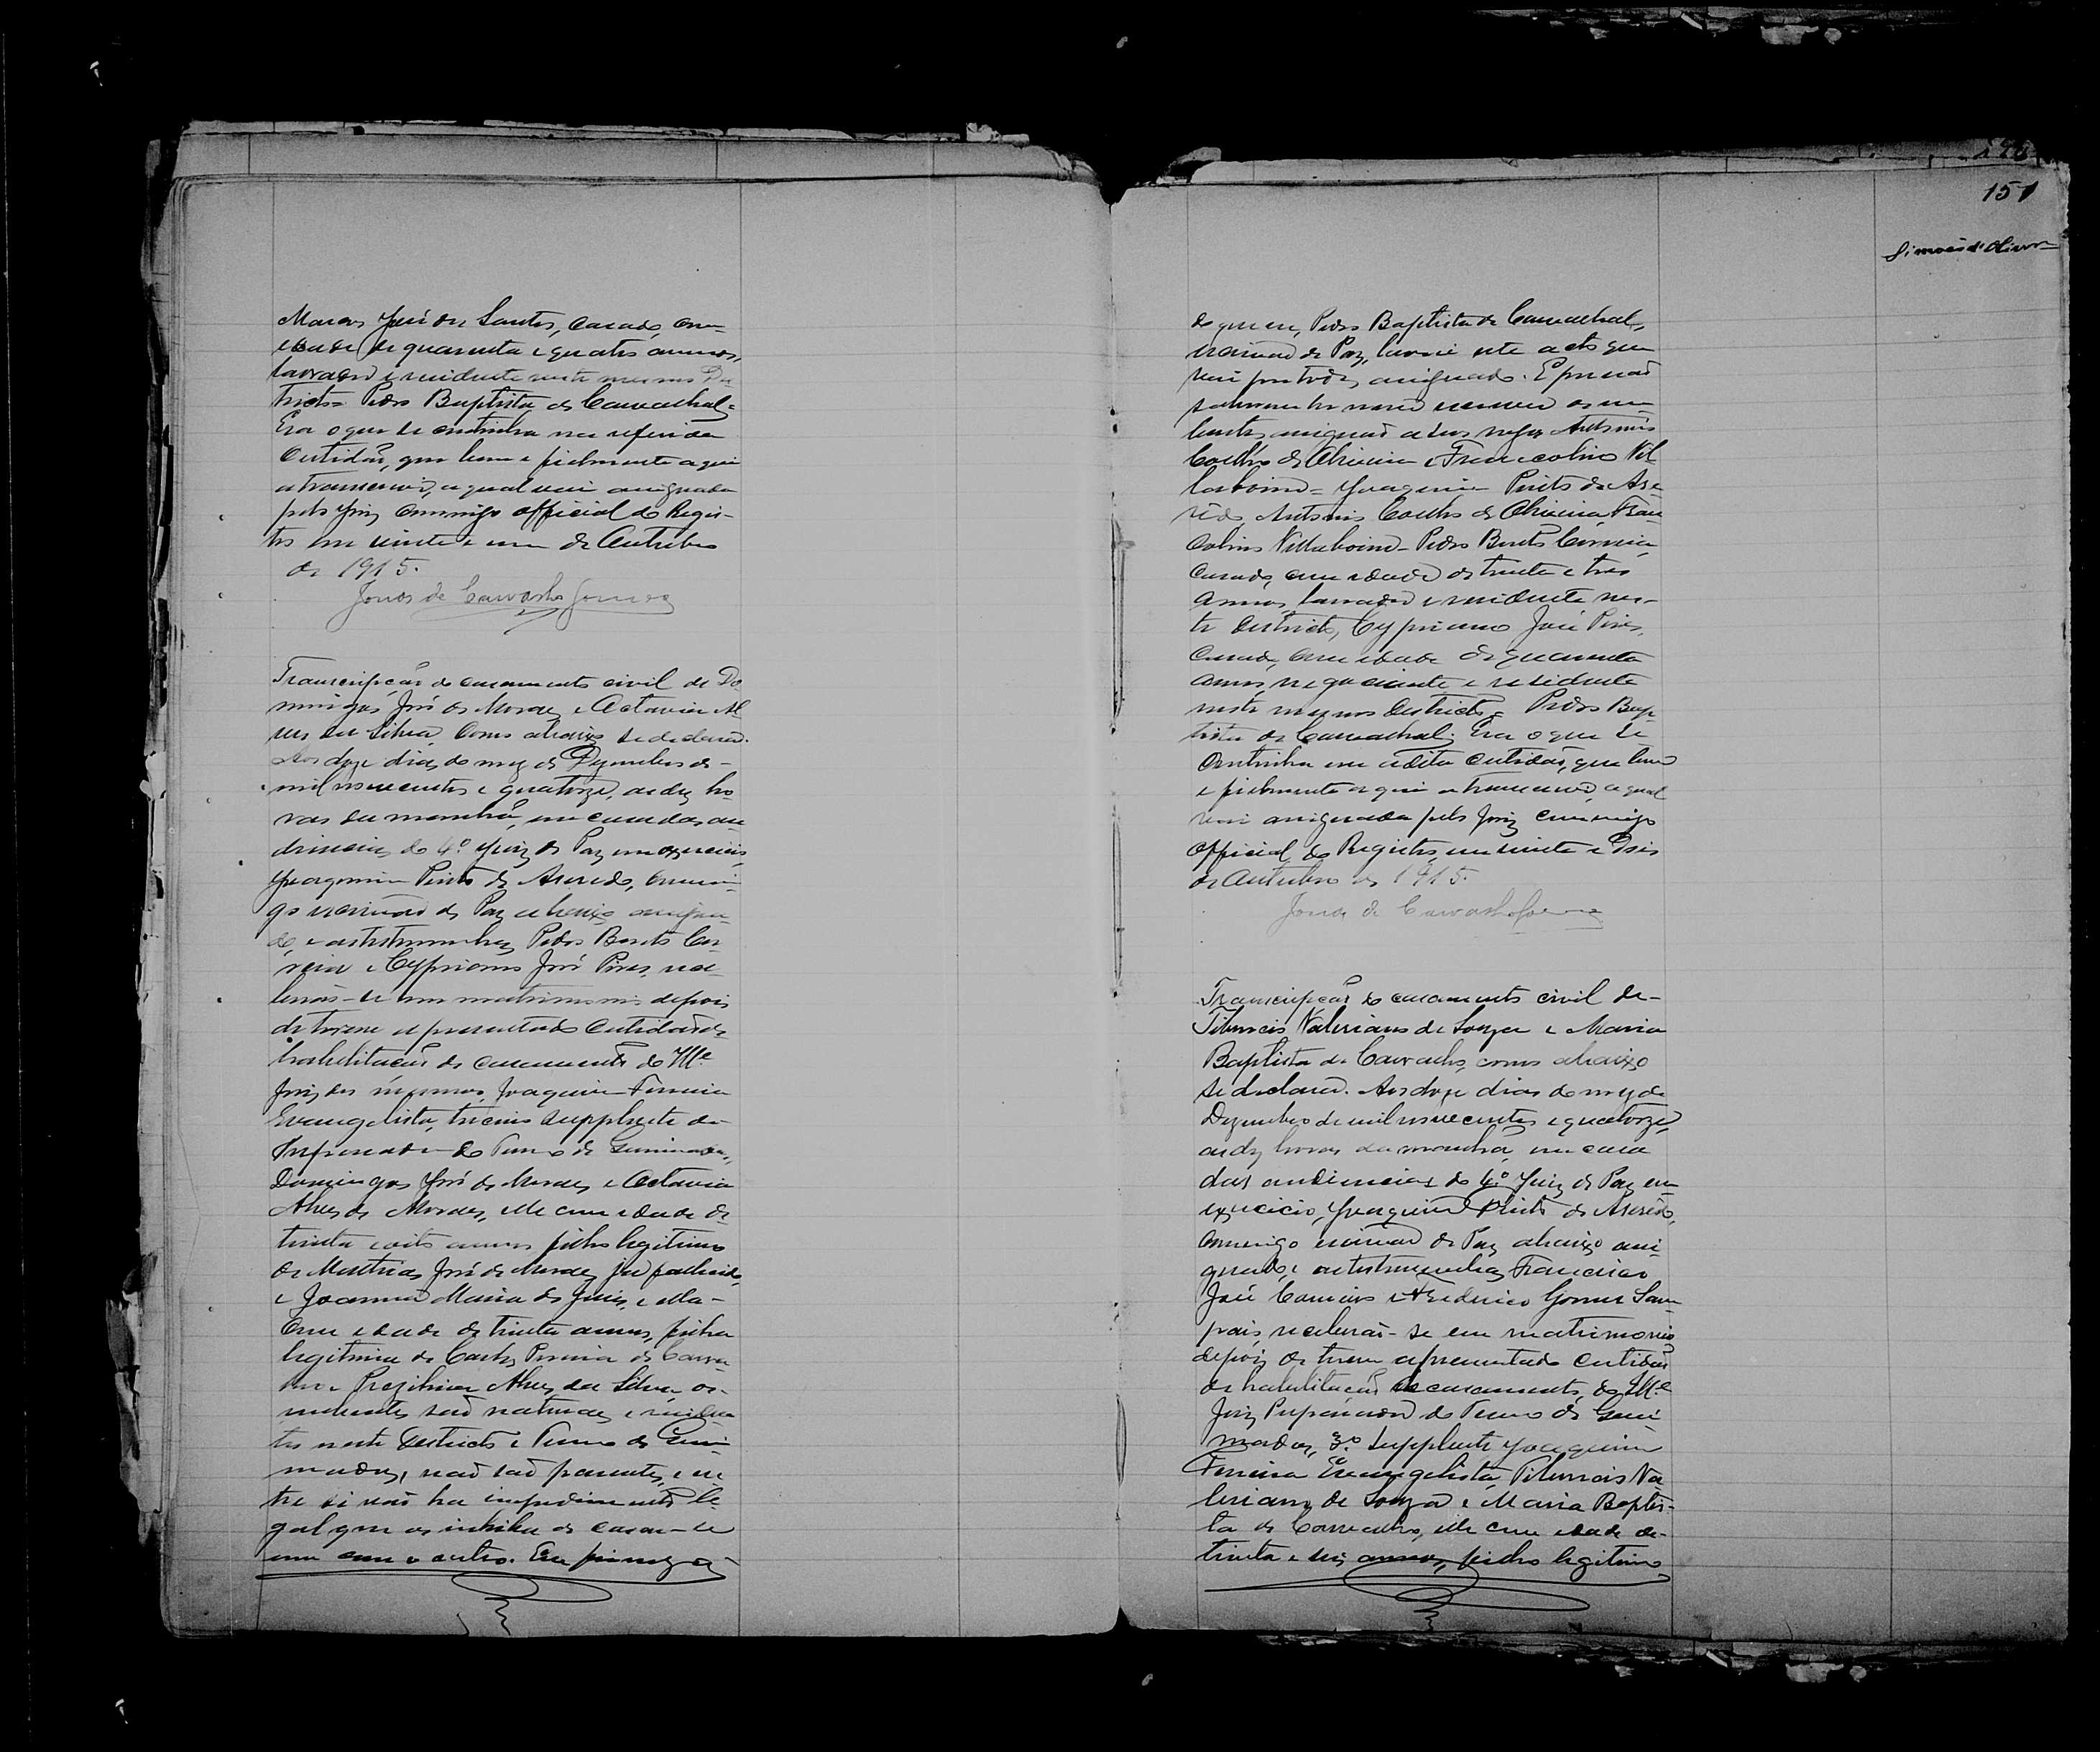 Marcos José dos Santos, casado, com
edade de quarenta e quatro annos,
lavrador e residente neste mesmo Dis
tricto. Pedro Baptista de Carvalhal.
Era o que se continha na referida
Certidão, que bem e fielmente aqui
a transcrevi, a qual vai assignada
pelo Juiz commigo official do Regis-
tro em vinte e um de Outubro
de 1915.
Jonas de Carvalho Gomes
Transcripção do casamento civil de Do
mingos José de Moraes e Octavia Al
ves da Silva, como abaixo se declara.
Aos doze dias do mez de Dezembro de
mil novecentos e quatorze, as dez ho-
ras da manhã, em casa das au
diencias do 4º Juiz de Paz em exercicio
Joaquim Pinto de Azevedo, commi-
go escrivão de Paz abaixo assigna-
do, e as testemunhas Pedro Bento Cor-
reia e Cypriano José Pires, rece
berão-se em matrimonio depois
de terem apresentado Certidão de
habilitação de casamento do Mº
Juiz dos mesmos, Joaquim Ferreira
Evangelista, terceiro supplente do
Preparador do Termo de
Domingos José de Moraes e Octavia
Alves de Moraes, elle com edade de
trinta e oito annos filho legitimo
de Mathias José de Moraes, já fallecido,
e Joanna Maria de Jesus, e ella
com edade de trinta annos, filha
legitima de Carlos Pereira de
e Alves da Silva, os
nubentes são naturaes e residen
tes neste Districto e Termo de
não são parentes, e en
tre si não ha impedimento le
gal que os inhiba de casar-se
um com o outro. Em firmeza
151
Simões d'Oliveira
do que eu, Pedro Baptista de Carvalhal,
escrivão de Paz, lavrei este acto que
vai por todos assignado. E por não
saberem ler nem escrever os nu
bentes assignão a seus rogos Antonio
Coelho de Oliveira e Francolino Vil
lasboim = Joaquim Pinto de Aze
vedo, Antonio Coelho de Oliveira, Fran
colino Villasboim. Pedro Bento Correia,
casado, com edade de trinta e tres
annos, lavrador e residente nes-
te Districto, Cypriano José Pires,
casado, com edade de quarenta
annos, negociante e residente
neste mesmo Districto. Pedro Bap
tista de Carvalhal. Era o que se
continha em a dita certidão, que bem
e fielmente aqui a transcrevi, a qual
vai assignada pelo Juiz commigo
official do Registro, em vinte e dois
de Outubro de 1915.
Jonas de Carvalho Gomes
Transcripção do casamento civil de
Tiburcio Valeriano de Souza e Maria
Baptista de Carvalho, como abaixo
se declara. Aos doze dias do mez de
Dezembro de mil novecentos e quatorze,
as dez horas da manhã, em casa
das audiencias do 4º Juiz de Paz em
exercicio, Joaquim Pinto de Azevedo,
commigo escrivão de Paz abaixo assi-
gnado, e as testemunhas Francisco
José Camões e Frederico Gomes Sam
paio, receberão-se em matrimonio
depois de terem apresentado certidão
de habilitação de casamento, do Mº
Juiz Preparador do Termo de
3º Supplente Joaquim
Ferreira Evangelista, Tiburcio Va
leriano de Souza e Maria Baptis-
ta de Carvalho, elle com edade de
trinta e seis annos, filho legitimo